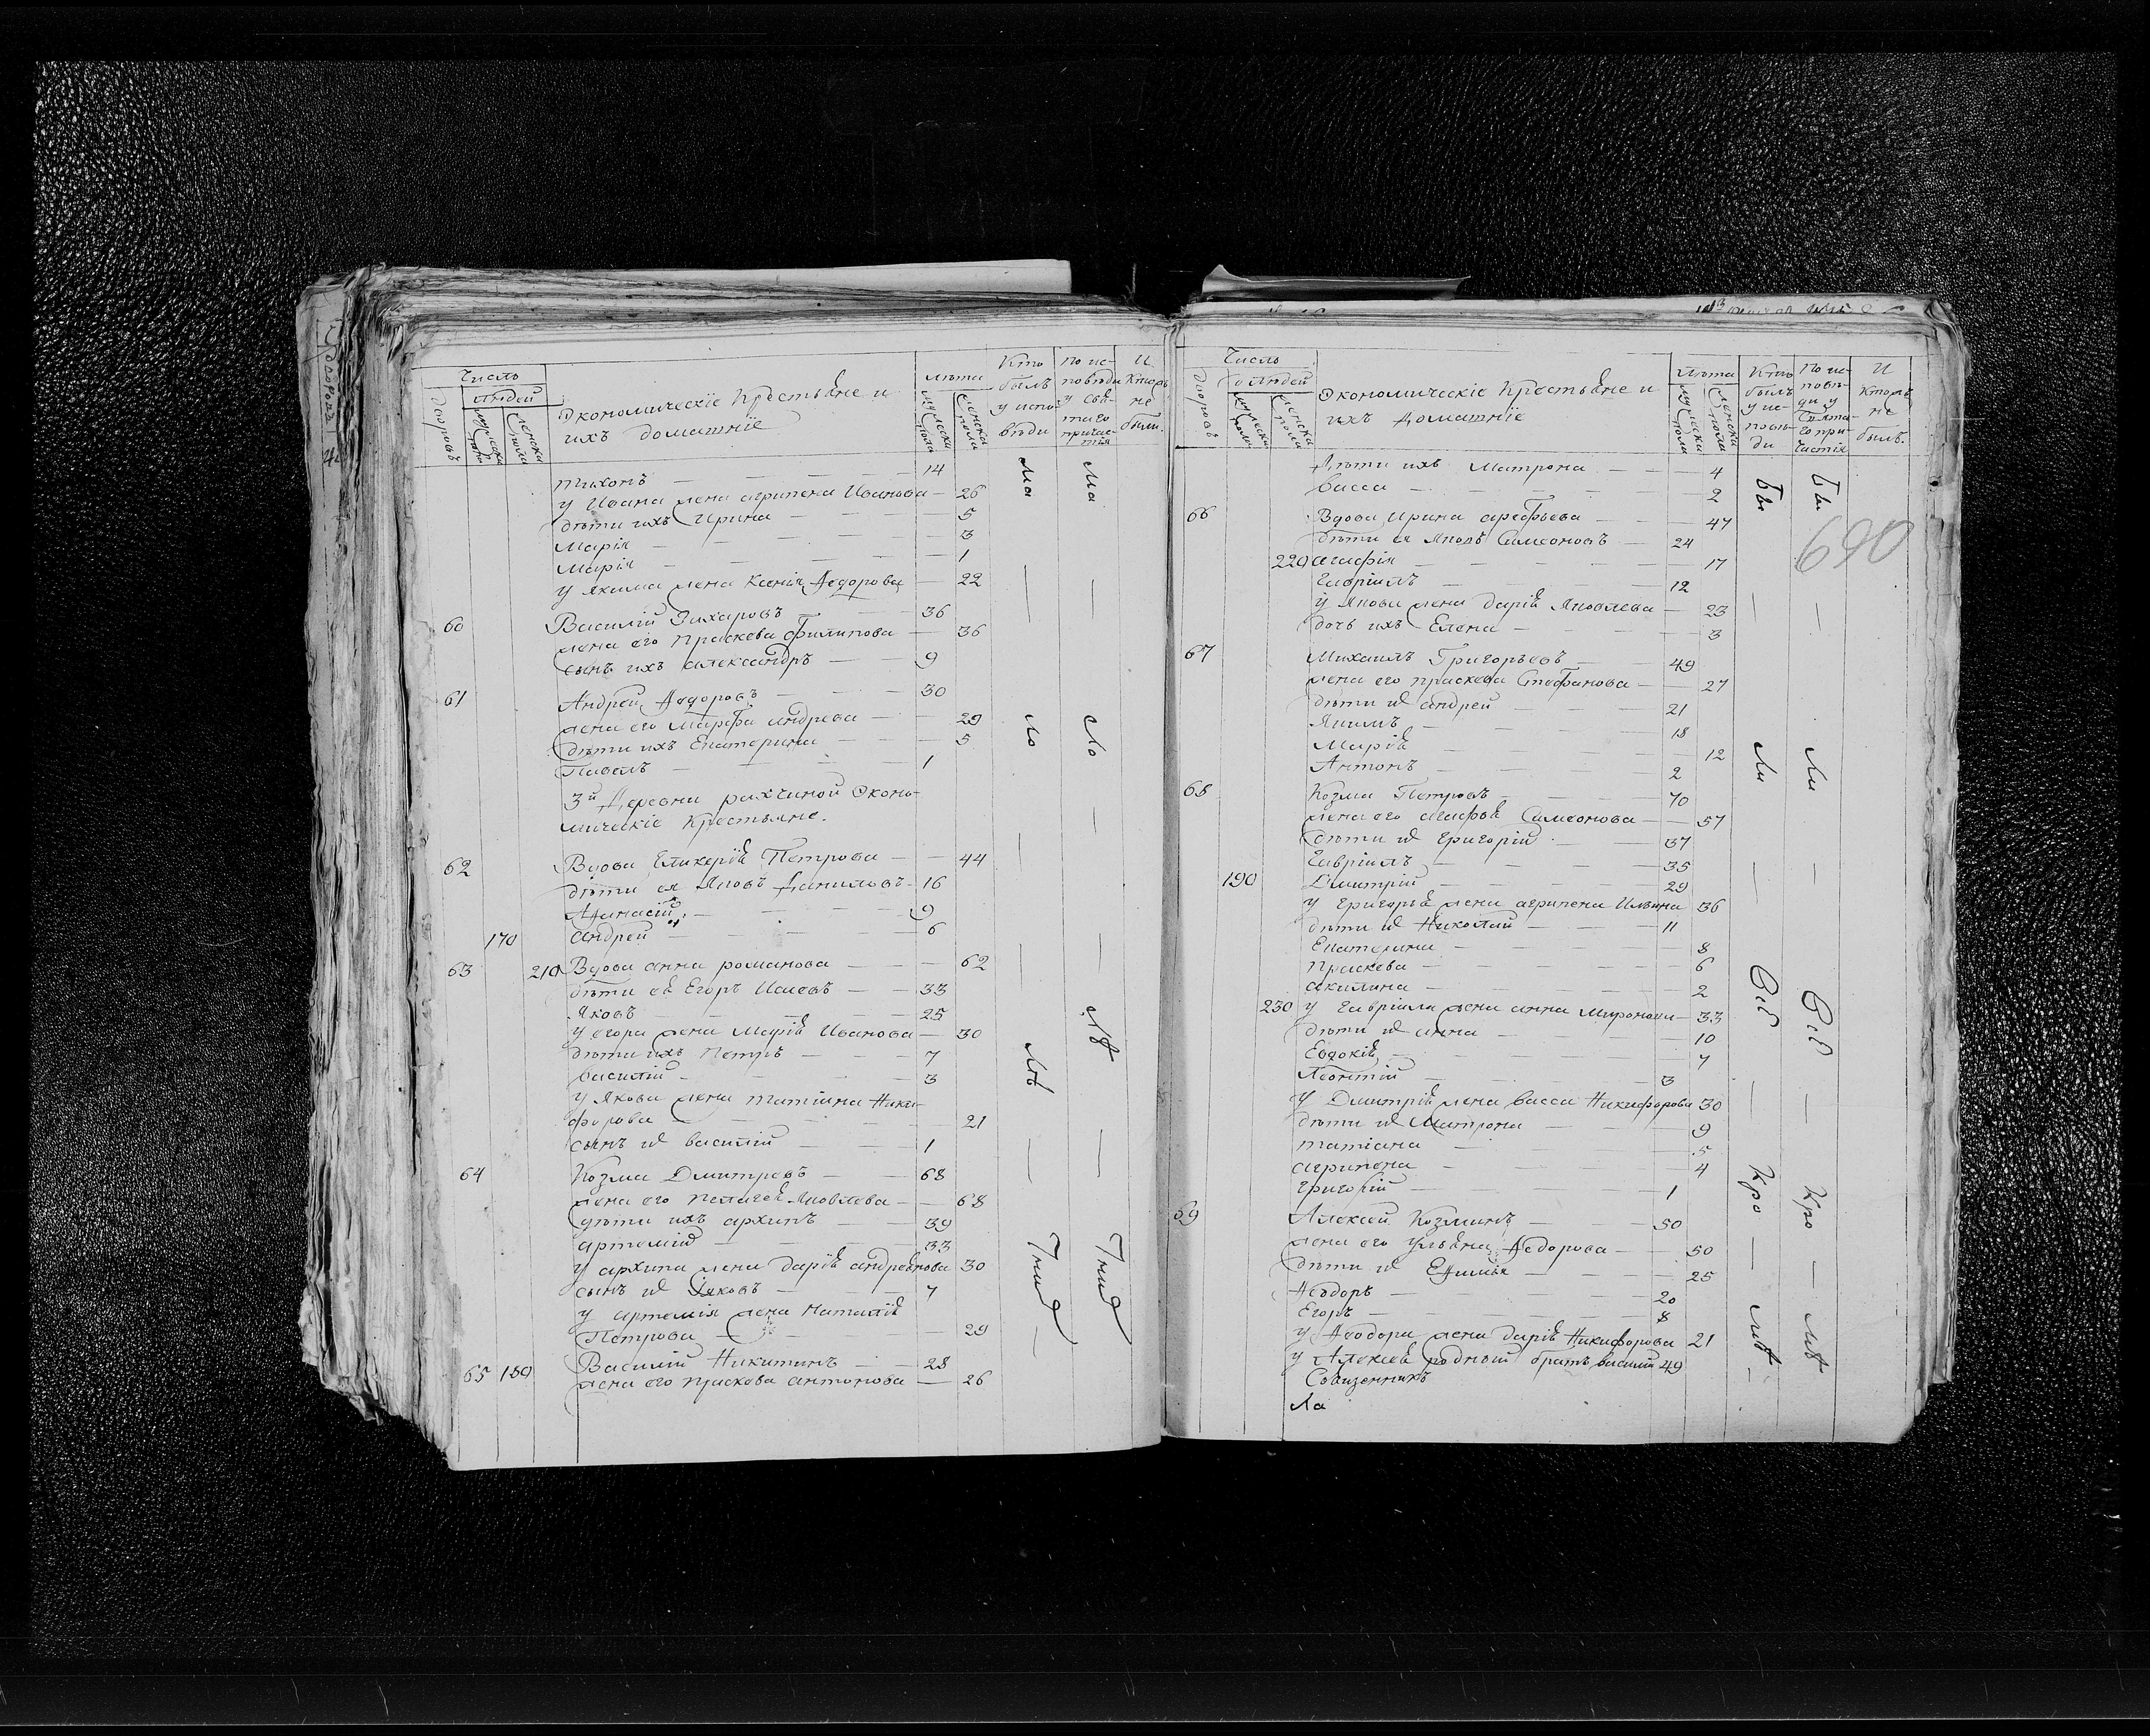 Число
людей
дворовъ
мужеска пола
женска пола
Экономическїе Крестьяне и
ихъ домашнїе
лѣта
мужеска пола
женска пола
Кто
былъ
у испо
вѣди
по ис-
повѣди
у свя
таго
причас-
тїя
И
Кторъ
не
были.
тихонъ 14
у Ивана жена агрипена Иванова 26
дѣти ихъ Ирина 5
Марїя 3
Марїя 1
у якима жена Ксенїя Ѳедорова 22
60 Василїй Захаровъ 36
жена его праскева Филипова 36
сынъ ихъ александръ 9
61 Андрей Ѳедоровъ 30
жена его Марфа андреева 29
дѣти ихъ Екатерина 5
Павелъ 1
3й Деревни рахчиной Эконо-
мическїе Крестьяне.
62 Вдова Гликерїя Петрова 44
дѣти ея Яковъ Даниловъ 16
Аѳанасїй 9
170 андрей 6
63 210 Вдова анна романова 62
дѣти ея Егоръ Исаевъ 33
Яковъ 25
у егора жена Марїя Иванова 30
дѣти ихъ Петръ 7
василїй 3
у Якова жена татїана Ники-
форова 21
сынъ их василїй 1
64 Козма Дмитревъ 68
жена его пелагея Яковлева 68
дѣти ихъ архипъ 39
артемїй 33
у архипа жена дарїя андреянова 30
сынъ их Яковъ 7
у артемїя жена наталїя
Петрова 29
65 180 Василїй Никитинъ 28
жена его праскева антонова 26
ма ма
ло ло
лѣ лѣ
тнид тнид
Число
людей
дворовъ
мужеска пола
женска пола
Экономическїе Крестьяне и
ихъ домашнїе
лѣта
мужеска пола
женска пола
Кто
былъ
у ис-
повѣ-
ди
По ис-
повѣ-
ди у
Свята-
го при-
частїя
И
Кторъ
не
былъ.
Дѣти ихъ Матрона 4
васса 2
66 Вдова Ирина арефьева 47
дѣти ея Яковъ Симеоновъ 24
220 агафїя 17
Гаврїилъ 12
у Якова жена дарїя Яковлева 23
дочь ихъ Елена 3
67 Михаилъ Григорьевъ 49
жена его праскева Стефанова 27
дѣти их андрей 21
Якимъ 18
Марїя 12
Антонъ 2
68 Козма Петровъ 70
жена его агафья Симеонова 57
дѣти их григорїй 37
Гаврїилъ 35
190 Дмитрїй 29
у григорья жена агрипена Ильина 36
дѣти их Николай 11
Екатерина 8
праскева 6
акилина 2
230 у гаврїила жена анна Миронова 33
дѣти их анна 10
Евдокїя 7
Леонтїй 3
У Дмитрїя жена васса Никифорова 30
дѣти их Матрона 9
татїана 5
агрипена 4
григорїй 1
69 Алексей Козминъ 50
жена его ульяна Ѳедорова 50
дѣти их Еѳимья 25
Ѳеодоръ 20
Егоръ 8
у Ѳеодора жена дарїя Никифорова 21
у Алексея родный братъ василїй 49
Ла
бы бы
ли ли
всѣ всѣ
кро кро
мѣ мѣ
690